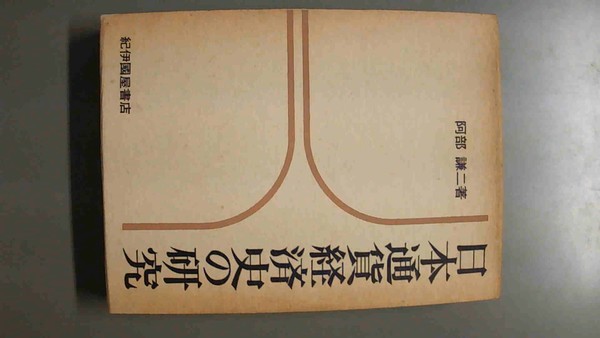 日本通貨経済史の研究
阿部 謙二著
紀伊國屋書店